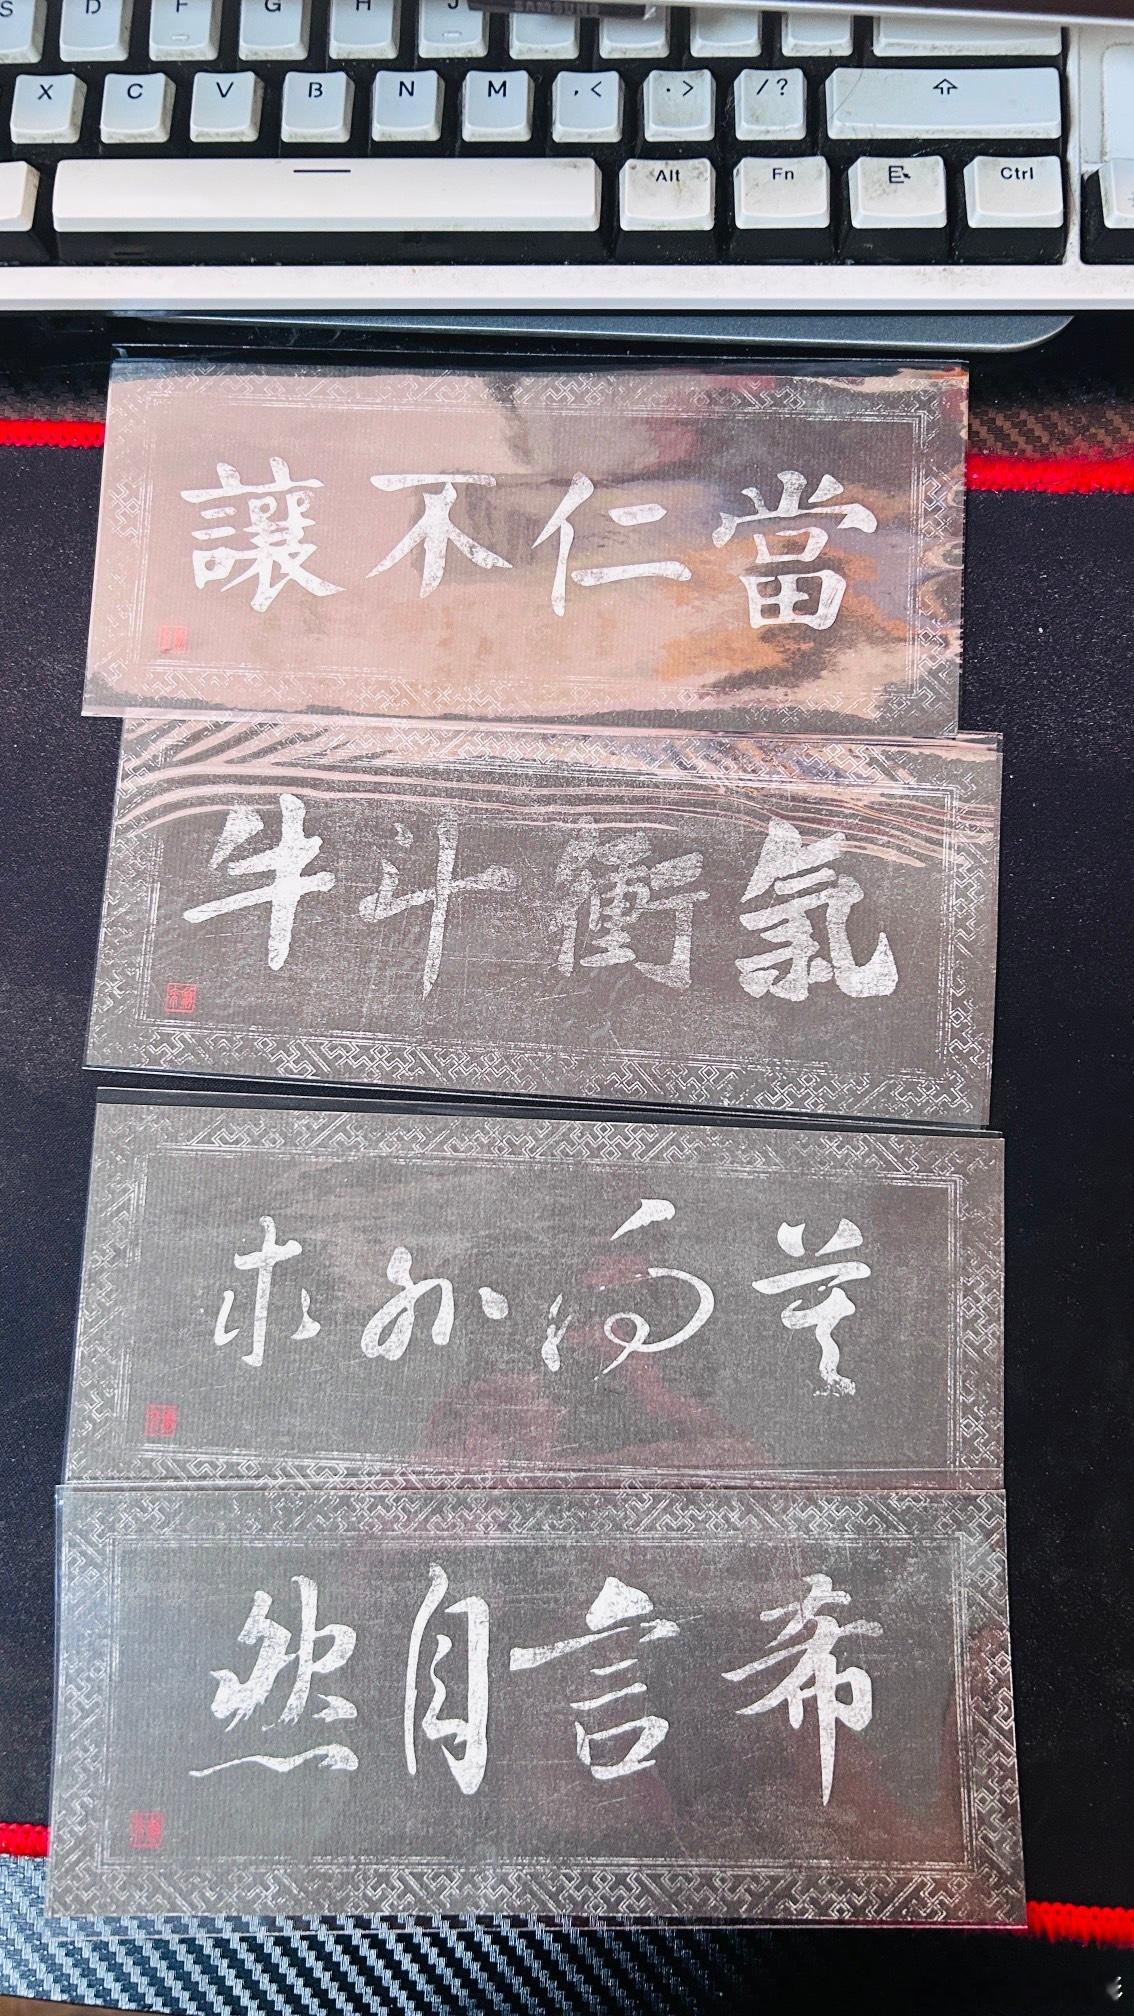 S D F G H J
SAMSUNG
X C V B N M ,< .> /?
Alt Fn Ctrl
當仁不讓
氣衝斗牛
莫向外求
希言自然